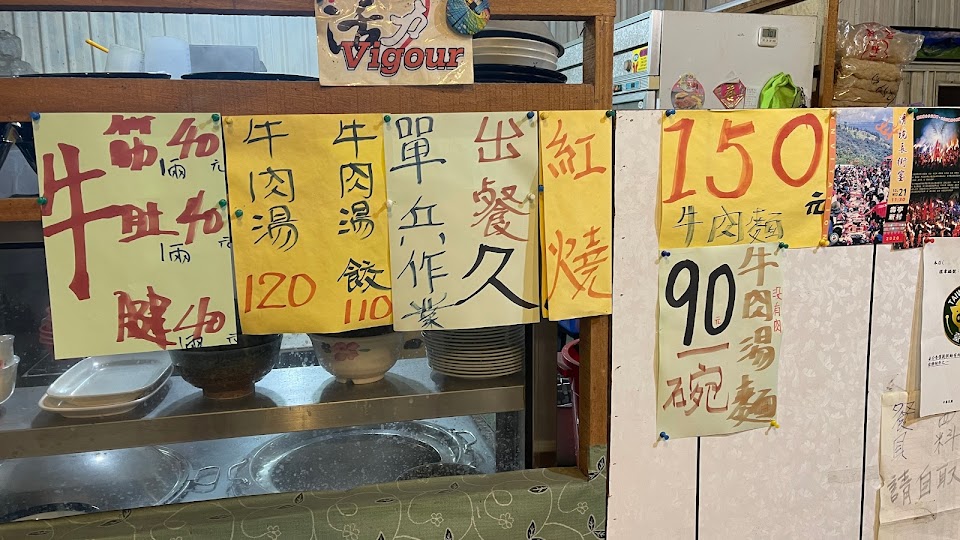 活力
Vigour
牛
筋40
兩元
牛肚40
兩元
腱40
兩元
牛肉湯
120
牛肉湯餃
110
單兵作業
出餐久
紅燒
150元
牛肉麵
90元
一碗
牛肉湯麵
沒有肉
21
餐具
料
請自取